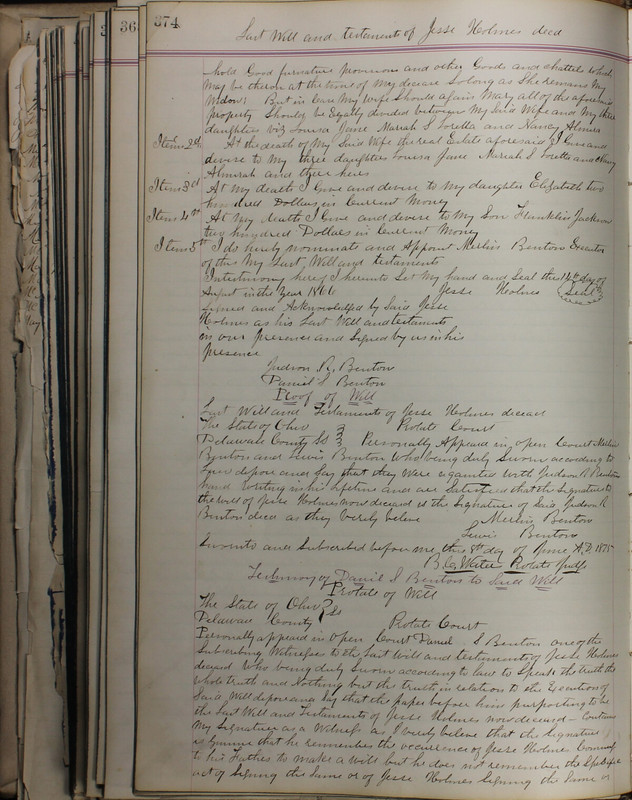 374
36
Last Will and testament of Jesse Holmes decd
hold Good furnature provisions and other Goods and chattels which
May be theron at the time of my decease so long as She remains My
Widow; But in Case My Wife Should again Mary all of the aforesaid
property Should be Equaly divided between My Said Wife and My three
daughters viz Louisa Jane Mariah S Loretta and Nancy Almira
Item 2nd At the death of My Said Wife the real Estate aforesaid I Give and
devise to My three daughters Louisa Jane Mariah S Loretta and Nancy
Almirah and their heirs
Item 3d At My death I Give and devise to My daughter Elizabeth two
hundred Dollars in Current Money
Item 4th At My death I Give and devise to My Son Franklin Jackson
two hundred Dollars in Current Money
Item 5th I do hereby nominate and Appoint Merlin Benton Executor
of this My Last Will and testament
In testimony hereof I hereunto Set My hand and Seal this 14th day of
in the Year 1866 Jesse Holmes Seal
Signed and Acknowledged by Said Jesse
Holmes as his Last Will and testament
in our presence and Signed by us in his
presence
Judson R. Benton
Daniel S Benton
Proof of Will
Last Will and Testament of Jesse Holmes deceased
The State of Ohio Probate Court
Delaware County SS Personally Appeared in open Court Merlin
Benton and Lewis Benton Who being duly Sworn according to
Law depose and Say that they Were aquainted with Judson R Benton
hand writing in his lifetime and are Satisfied that the Signature to
the will of Jesse Holmes now deceased is the Signature of Said Judson R
Benton decd as they verily believe Merlin Benton
Lewis Benton
Sworn to and Subscribed before me this 8th day of June A.D. 1875
B C Waters Probate Judge
Testimony of Daniel S Benton to Said Will
Probate of Will
The State of Ohio SS
Delaware County Probate Court
Personally appeared in open Court Daniel S Benton one of the
Subscribing Witnesses to the Last Will and testament of Jesse Holmes
deceased Who being duly Sworn according to Law to Speak the truth the
whole truth and Nothing but the truth in relation to the Execution of
Said Will depose and Say that the paper before him purporting to be
the Last Will and Testament of Jesse Holmes now deceased - Contains
My Signature as a Witness as I verily believe that the Signature
is Genuine that he remembers the occurrence of Jesse Holmes Coming
to his Fathers to make a will but he does not remember the Specific
act of Signing the Same or of Jesse Holmes Signing the Same or